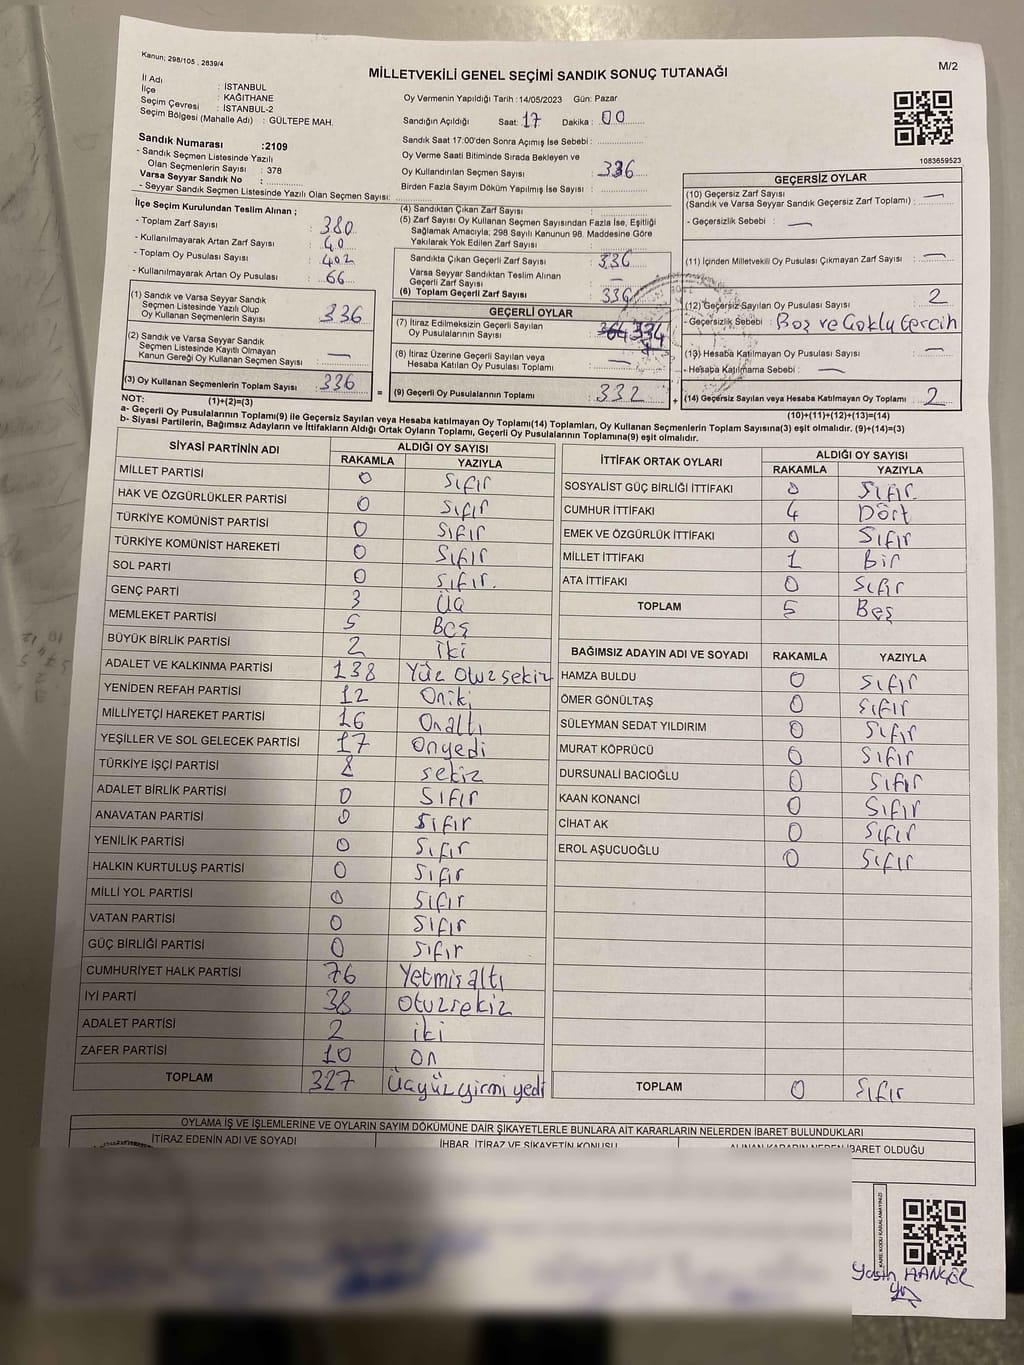 Kanun; 298/105 , 2839/4
MİLLETVEKİLİ GENEL SEÇİMİ SANDIK SONUÇ TUTANAĞI
M/2
İl Adı : İSTANBUL
İlçe : KAĞITHANE
Seçim Çevresi : İSTANBUL-2
Seçim Bölgesi (Mahalle Adı) : GÜLTEPE MAH.
Sandık Numarası :2109
- Sandık Seçmen Listesinde Yazılı
Olan Seçmenlerin Sayısı : 378
Varsa Seyyar Sandık No :
- Seyyar Sandık Seçmen Listesinde Yazılı Olan Seçmen Sayısı:
Oy Vermenin Yapıldığı Tarih :14/05/2023 Gün: Pazar
Sandığın Açıldığı Saat: 17 Dakika : 00
Sandık Saat 17:00'den Sonra Açımış İse Sebebi :
Oy Verme Saati Bitiminde Sırada Bekleyen ve
Oy Kullandırılan Seçmen Sayısı : 336
Birden Fazla Sayım Döküm Yapılmış İse Sayısı :
1083659523
İlçe Seçim Kurulundan Teslim Alınan ;
- Toplam Zarf Sayısı : 380
- Kullanılmayarak Artan Zarf Sayısı : 40
- Toplam Oy Pusulası Sayısı : 402
- Kullanılmayarak Artan Oy Pusulası : 66
(1) Sandık ve Varsa Seyyar Sandık
Seçmen Listesinde Yazılı Olup
Oy Kullanan Seçmenlerin Sayısı : 336
(2) Sandık ve Varsa Seyyar Sandık
Seçmen Listesinde Kayıtlı Olmayan
Kanun Gereği Oy Kullanan Seçmen Sayısı : —
(3) Oy Kullanan Seçmenlerin Toplam Sayısı : 336
(1)+(2)=(3)
(4) Sandıktan Çıkan Zarf Sayısı :
(5) Zarf Sayısı Oy Kullanan Seçmen Sayısından Fazla İse, Eşitliği
Sağlamak Amacıyla; 298 Sayılı Kanunun 98. Maddesine Göre
Yakılarak Yok Edilen Zarf Sayısı :
Sandıkta Çıkan Geçerli Zarf Sayısı : 336
Varsa Seyyar Sandıktan Teslim Alınan
Geçerli Zarf Sayısı
(6) Toplam Geçerli Zarf Sayısı : 336
GEÇERLİ OYLAR
(7) İtiraz Edilmeksizin Geçerli Sayılan
Oy Pusulalarının Sayısı : 364 334
(8) İtiraz Üzerine Geçerli Sayılan veya
Hesaba Katılan Oy Toplamı : —
(9) Geçerli Oy Pusulalarının Toplamı : 332
GEÇERSİZ OYLAR
(10) Geçersiz Zarf Sayısı : —
(Sandık ve Varsa Seyyar Sandık Geçersiz Zarf Toplamı) :
- Geçersizlik Sebebi : —
(11) İçinden Milletvekili Oy Pusulası Çıkmayan Zarf Sayısı : —
(12) Geçersiz Sayılan Oy Pusulası Sayısı : 2
- Geçersizlik Sebebi : Boş ve Çoklu tercih
(13) Hesaba Katılmayan Oy Pusulası Sayısı : —
- Hesaba Katılmama Sebebi : —
(14) Geçersiz Sayılan veya Hesaba Katılmayan Oy Toplamı : 2
(10)+(11)+(12)+(13)=(14)
NOT:
a- Geçerli Oy Pusulalarının Toplamı(9) ile Geçersiz Sayılan veya Hesaba katılmayan Oy Toplamı(14) Toplamları, Oy Kullanan Seçmenlerin Toplam Sayısına(3) eşit olmalıdır. (9)+(14)=(3)
b- Siyasi Partilerin, Bağımsız Adayların ve İttifakların Aldığı Ortak Oyların Toplamı, Geçerli Oy Pusulalarının Toplamına(9) eşit olmalıdır.
SİYASİ PARTİNİN ADI ALDIĞI OY SAYISI
RAKAMLA YAZIYLA
MİLLET PARTİSİ 0 Sıfır
HAK VE ÖZGÜRLÜKLER PARTİSİ 0 Sıfır
TÜRKİYE KOMÜNİST PARTİSİ 0 Sıfır
TÜRKİYE KOMÜNİST HAREKETİ 0 Sıfır
SOL PARTİ 0 Sıfır.
GENÇ PARTİ 3 Üç
MEMLEKET PARTİSİ 5 Beş
BÜYÜK BİRLİK PARTİSİ 2 iki
ADALET VE KALKINMA PARTİSİ 138 Yüz Otuzsekiz
YENİDEN REFAH PARTİSİ 12 Oniki
MİLLİYETÇİ HAREKET PARTİSİ 16 Onaltı
YEŞİLLER VE SOL GELECEK PARTİSİ 17 Onyedi
TÜRKİYE İŞÇİ PARTİSİ 8 sekiz
ADALET BİRLİK PARTİSİ 0 Sıfır
ANAVATAN PARTİSİ 0 Sıfır
YENİLİK PARTİSİ 0 Sıfır
HALKIN KURTULUŞ PARTİSİ 0 Sıfır
MİLLİ YOL PARTİSİ 0 Sıfır
VATAN PARTİSİ 0 Sıfır
GÜÇ BİRLİĞİ PARTİSİ 0 Sıfır
CUMHURİYET HALK PARTİSİ 76 Yetmişaltı
İYİ PARTİ 38 Otuzsekiz
ADALET PARTİSİ 2 iki
ZAFER PARTİSİ 10 on
TOPLAM 327 Üçyüzyirmiyedi
İTTİFAK ORTAK OYLARI ALDIĞI OY SAYISI
RAKAMLA YAZIYLA
SOSYALİST GÜÇ BİRLİĞİ İTTİFAKI 0 Sıfır
CUMHUR İTTİFAKI 4 Dört
EMEK VE ÖZGÜRLÜK İTTİFAKI 0 Sıfır
MİLLET İTTİFAKI 1 Bir
ATA İTTİFAKI 0 Sıfır
TOPLAM 5 Beş
BAĞIMSIZ ADAYIN ADI VE SOYADI RAKAMLA YAZIYLA
HAMZA BULDU 0 Sıfır
ÖMER GÖNÜLTAŞ 0 Sıfır
SÜLEYMAN SEDAT YILDIRIM 0 Sıfır
MURAT KÖPRÜCÜ 0 Sıfır
DURSUNALİ BACIOĞLU 0 Sıfır
KAAN KONANCİ 0 Sıfır
CİHAT AK 0 Sıfır
EROL AŞUCUOĞLU 0 Sıfır
TOPLAM 0 Sıfır
OYLAMA İŞ VE İŞLEMLERİNE VE OYLARIN SAYIM DÖKÜMÜNE DAİR ŞİKAYETLERLE BUNLARA AİT KARARLARIN NELERDEN İBARET BULUNDUKLARI
İTİRAZ EDENİN ADI VE SOYADI İHBAR, İTİRAZ VE ŞİKAYETİN KONUSU ALINAN KARARIN NEDEN İBARET OLDUĞU
KARE KODU KARALAMAYINIZ!
Yasin